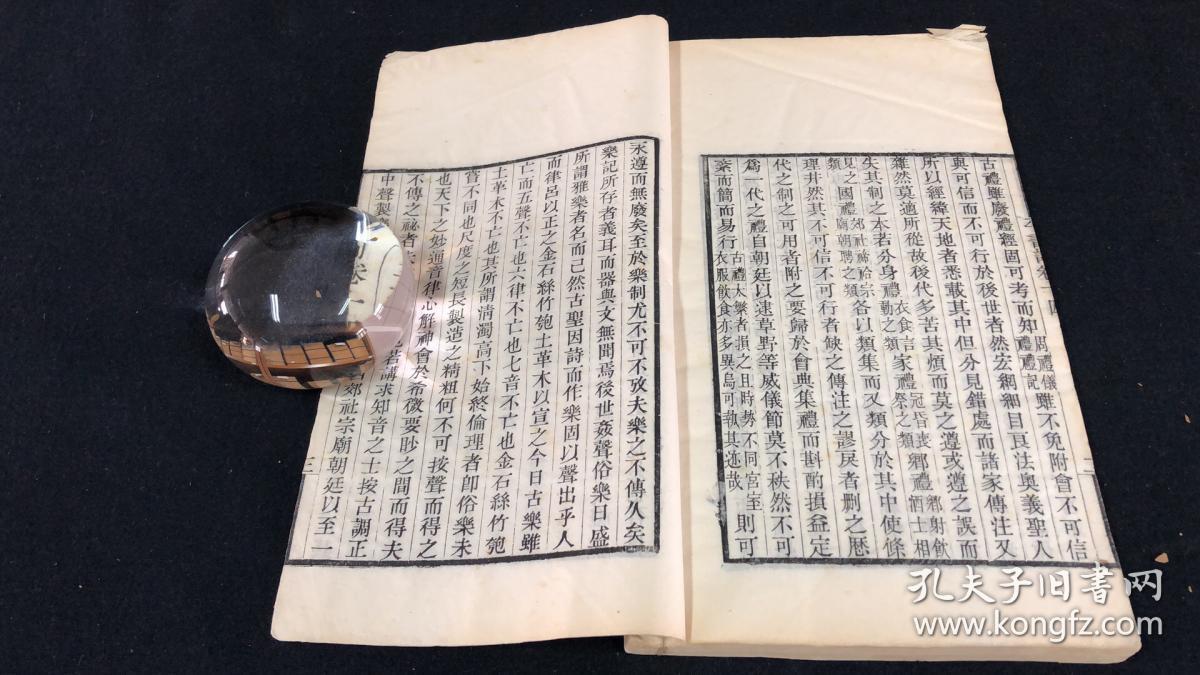 古禮雖廢禮經固可考而知周禮儀禮禮記雖不免附會不可信
與可信而不可行於後世者然宏綱細目良法奧義聖人
所以經緯天地者悉載其中但分見錯處而諸家傳注又
雜然莫適所從故後代多苦其煩而莫之遵或遵之誤而
失其制之本若分身禮衣食言動之類家禮冠昏喪祭之類鄉禮鄉射飲酒士相
見之類國禮郊社禘祫宗廟朝聘之類各以類集而又類分於其中使條
理井然其不可信不可行者缺之傳注之謬戾者刪之歷
代之制之可用者附之要歸於會典集禮而斟酌損益定
為一代之禮自朝廷以逮草野等威儀節莫不秩然不可
紊而簡而易行古禮太繁者損之且時勢不同宮室衣服飲食亦多異烏可執其迹哉則可
永遵而無廢矣至於樂制尤不可不攷夫樂之不傳久矣
樂記所存者義耳而器與文無聞焉後世姦聲俗樂日盛
所謂雅樂者名而已然古聖因詩而作樂固以聲出乎人
而律呂以正之金石絲竹匏土革木以宣之今日古樂雖
亡而五聲不亡也六律不亡也七音不亡也金石絲竹匏
土革木不亡也其所謂清濁高下始終倫理者卽俗樂未
嘗不同也尺度之短長製造之精粗何不可按聲而得之
也天下之妙通音律心解神會於希微要眇之間而得夫
不傳之祕者夫
若講求知音之士按古調正
中聲製
郊社宗廟朝廷以至一
三
孔夫子旧书网
www.kongfz.com